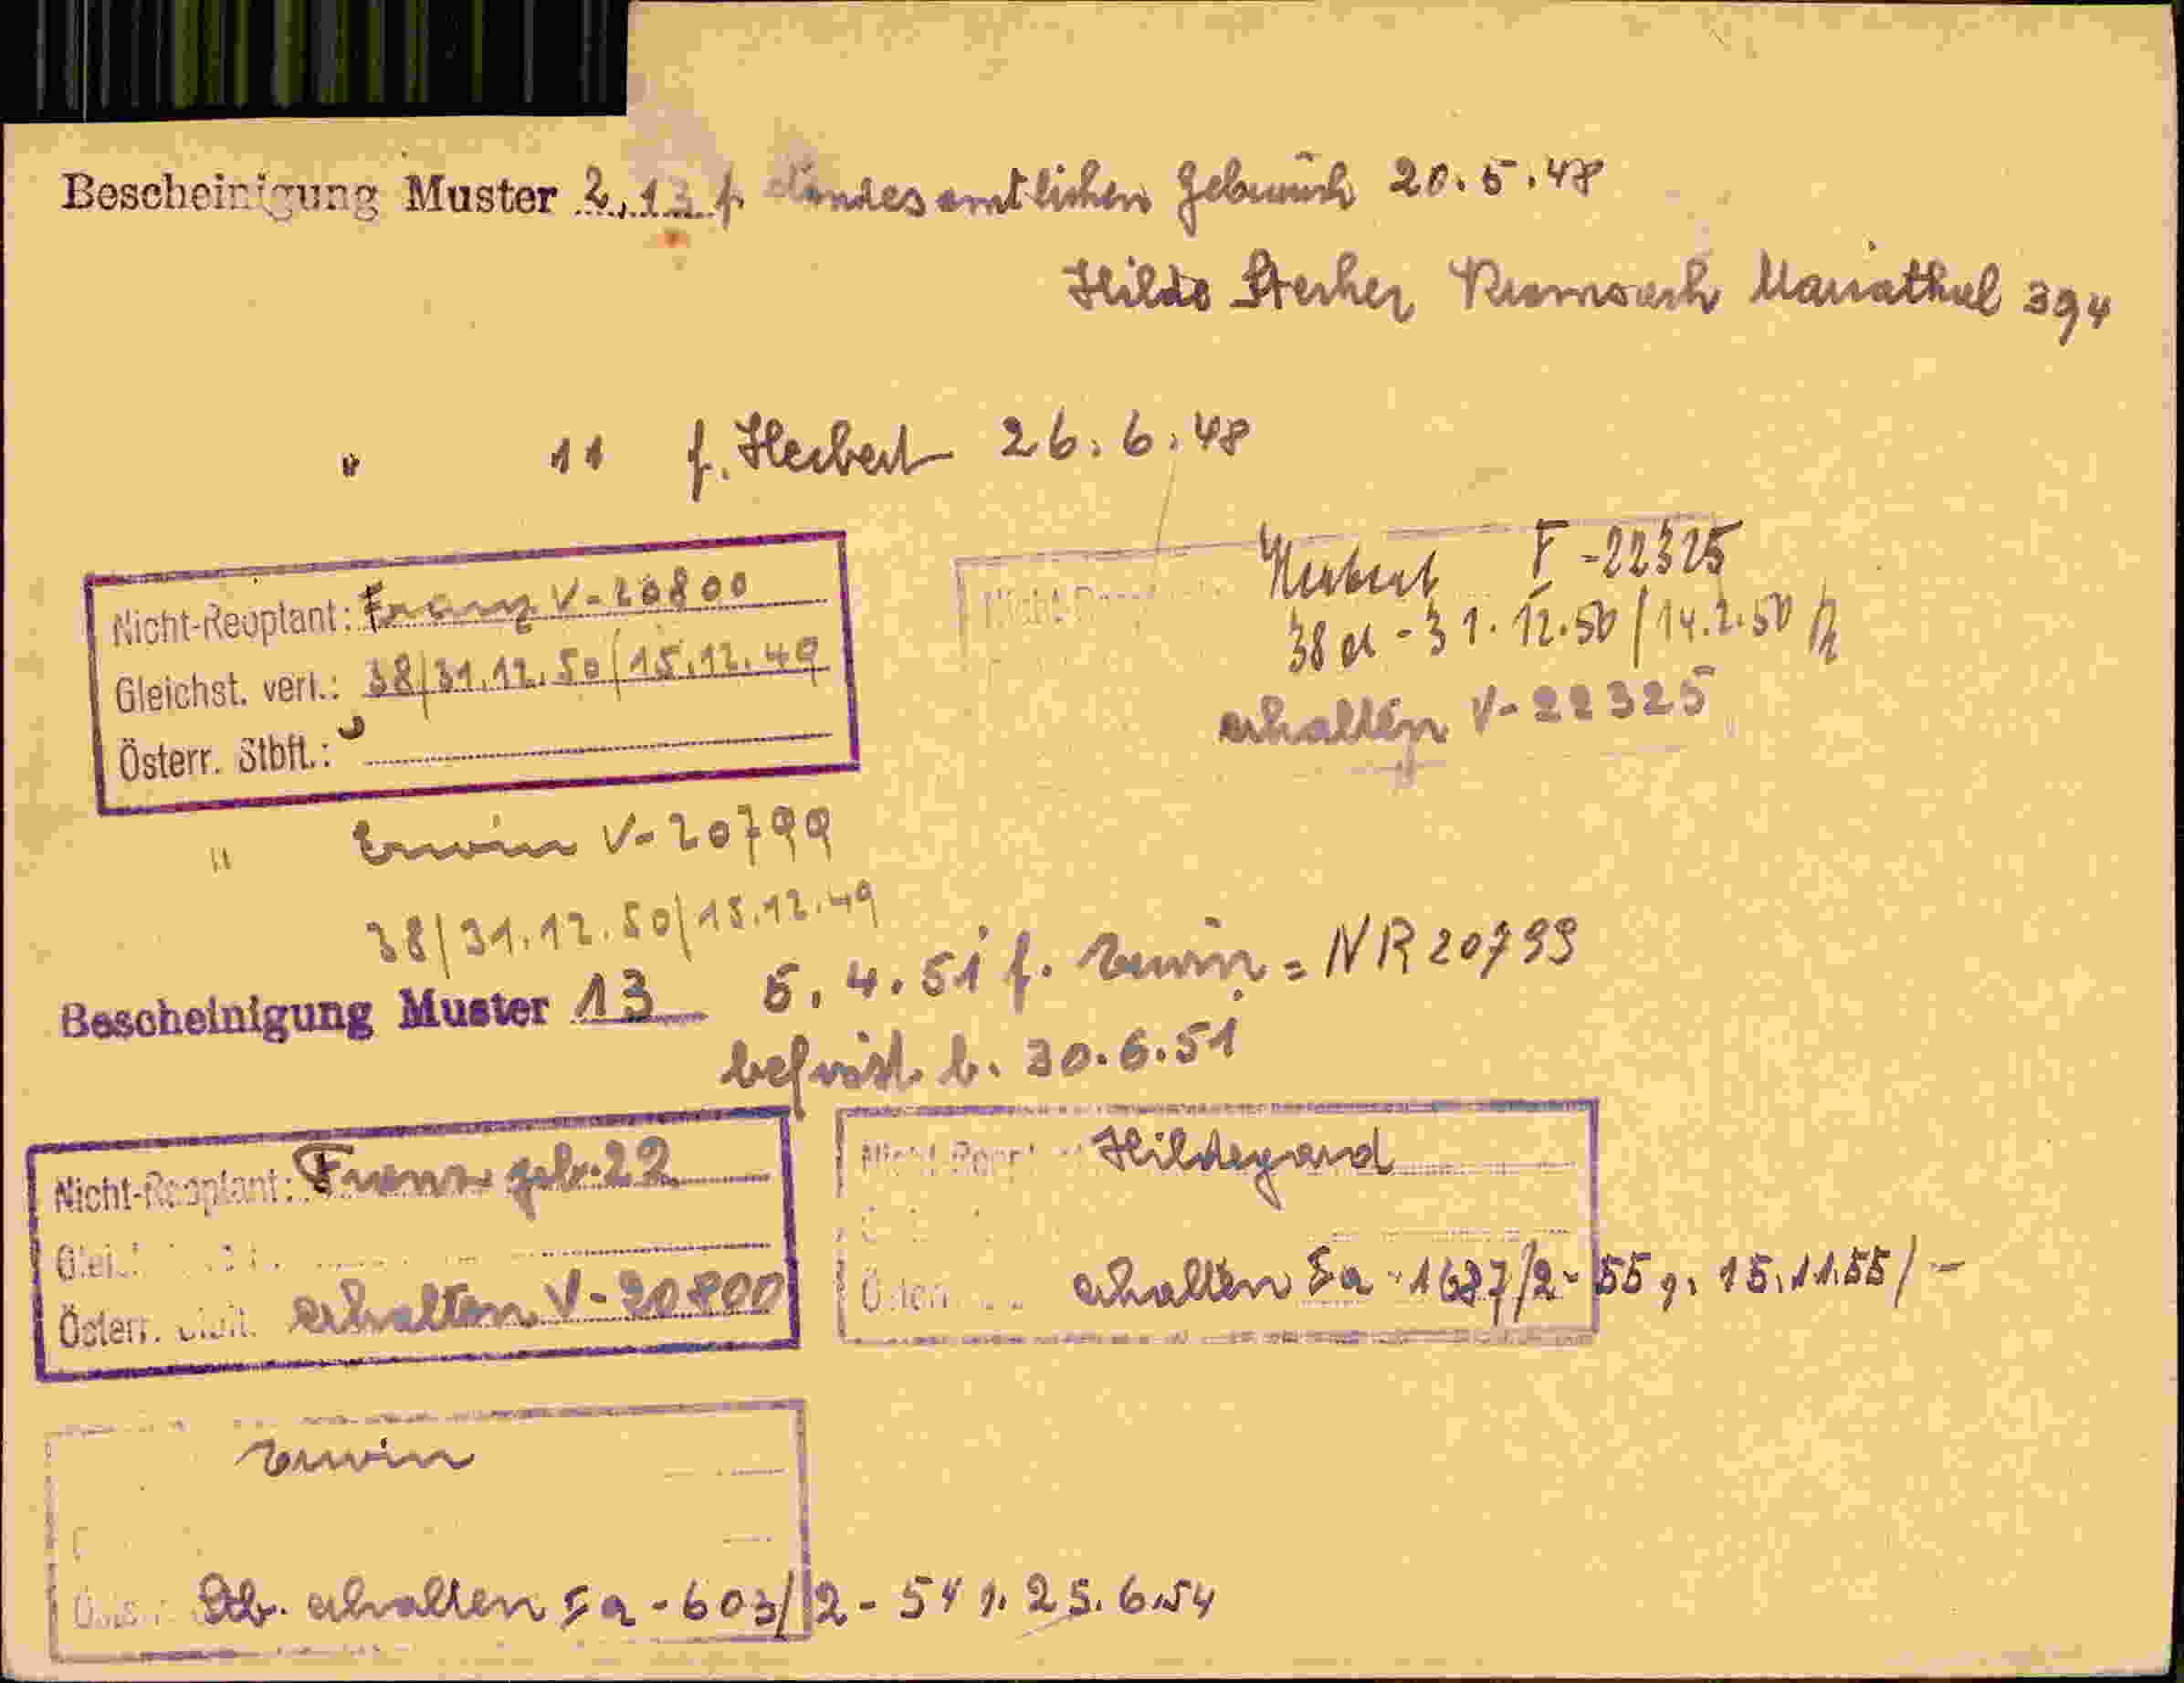 Bescheinigung Muster 2, 13 f. standesamtlichen Gebrauch 20.5.48
Hilde Stecher Mariathal 394
" 11 f. Herbert 26.6.48
Nicht-Reoptant: Franz V-20800
Gleichst. verl.: 38/31.12.50/15.12.49
Österr. Stbft.:
Herbert V-22325
38 a - 31.12.50/14.2.50
erhalten V-22325
" Erwin V-20799
38/31.12.50/15.12.49
Bescheinigung Muster 13 5.4.51 f. Erwin = NR 20799
befrist. b. 30.6.51
Nicht-Reoptant: Franz geb. 22
Österr. erhalten V-20800
Nicht-Reopt Hildegard
Österr. erhalten 5a-1687/2-55 v. 15.11.55/-
Erwin
Stb. erhalten 5a-603/2-54 v. 25.6.54